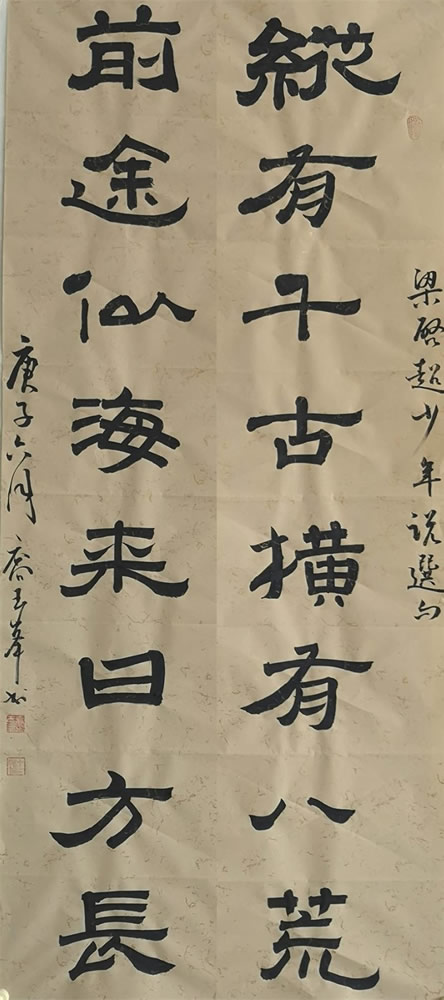 梁啓超少年説選句
縱有千古橫有八荒
前途似海来日方長
庚子六月喬玉峯书